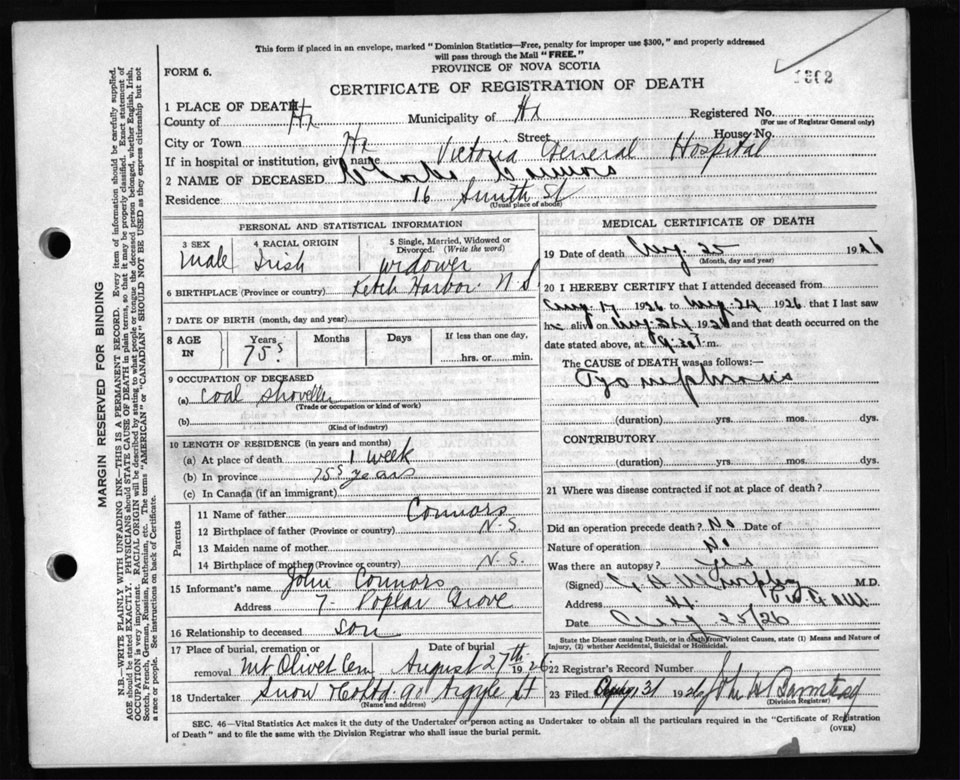 This form if placed in an envelope, marked "Dominion Statistics—Free, penalty for improper use $300," and properly addressed
will pass through the Mail "FREE."
FORM 6.
PROVINCE OF NOVA SCOTIA
1302
CERTIFICATE OF REGISTRATION OF DEATH
1 PLACE OF DEATH
County of Hx Municipality of Hx Registered No.
(For use of Registrar General only)
City or Town Hx Street House No.
If in hospital or institution, give name Victoria General Hospital
2 NAME OF DECEASED Charles Connors
Residence 16 Smith St
(Usual place of abode)
PERSONAL AND STATISTICAL INFORMATION
3 SEX 4 RACIAL ORIGIN 5 Single, Married, Widowed or Divorced. (Write the word)
Male Irish widower
6 BIRTHPLACE (Province or country) Ketch Harbor N S
7 DATE OF BIRTH (month, day and year)
8 AGE IN Years Months Days If less than one day,
75 hrs. or min.
9 OCCUPATION OF DECEASED
(a) Coal Shoveller
(Trade or occupation or kind of work)
(b)
(Kind of industry)
10 LENGTH OF RESIDENCE (in years and months)
(a) At place of death 1 week
(b) In province 75 years
(c) In Canada (if an immigrant)
Parents
11 Name of father Connors
12 Birthplace of father (Province or country) N-S.
13 Maiden name of mother
14 Birthplace of mother (Province or country) N-S.
15 Informant's name John Connors
Address 7- Poplar Grove
16 Relationship to deceased son
17 Place of burial, cremation or removal Mt Olivet Cem Date of burial August 27th 1926
18 Undertaker Snow & Co Ltd 90 Argyle St
(Name and address)
MEDICAL CERTIFICATE OF DEATH
19 Date of death Aug. 25 1926
(Month, day and year)
20 I HEREBY CERTIFY that I attended deceased from
Aug 17 1926 to Aug 24 1926 that I last saw
h alive on Aug 24 1926 and that death occurred on the
date stated above, at 9:30 m.
The CAUSE of DEATH was as follows:—
Pyonephrosis
(duration) yrs. mos. dys.
CONTRIBUTORY
(duration) yrs. mos. dys.
21 Where was disease contracted if not at place of death?
Did an operation precede death? No Date of
Nature of operation No
Was there an autopsy? Yes
(Signed) Murphy M.D.
Address Hx
Date Aug 25/26
State the Disease causing Death, or in death from Violent Causes, state (1) Means and Nature of
Injury, (2) whether Accidental, Suicidal or Homicidal.
22 Registrar's Record Number
23 Filed 31 1926 John W Barnstead
(Division Registrar)
SEC. 46—Vital Statistics Act makes it the duty of the Undertaker or person acting as Undertaker to obtain all the particulars required in the "Certificate of Registration
of Death" and to file the same with the Division Registrar who shall issue the burial permit. (OVER)
MARGIN RESERVED FOR BINDING
N.B.—WRITE PLAINLY, WITH UNFADING INK—THIS IS A PERMANENT RECORD. Every item of information should be carefully supplied.
AGE should be stated EXACTLY. PHYSICIANS should STATE CAUSE OF DEATH in plain terms, so that it may be properly classified. Exact statement of
OCCUPATION is very important. RACIAL ORIGIN will be described by stating to what people or tongue the deceased person belonged, whether English, Irish,
Scotch, French, German, Russian, Ruthenian, etc. The terms "AMERICAN" or "CANADIAN" SHOULD NOT BE USED as they express citizenship but not
a race or people. See instructions on back of Certificate.